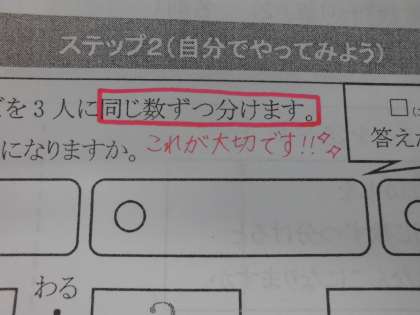 ステップ2(自分でやってみよう)
を3人に同じ数ずつ分けます。
になりますか。これが大切です!!
□に
答えた
わる